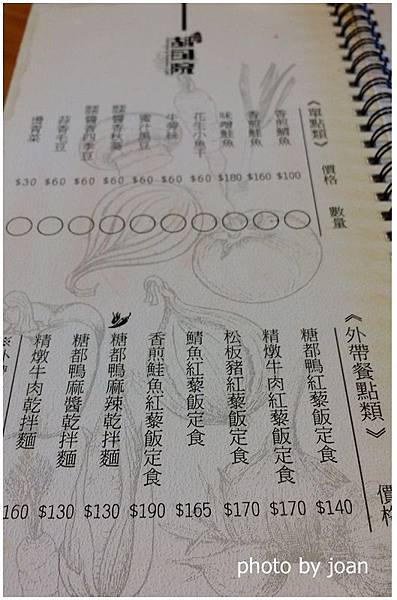 《單點類》 價格 數量
香煎鯛魚 $100
香煎鮭魚 $160
味噌鮭魚 $180
花生小魚干 $60
牛蒡絲 $60
蜜汁黑豆 $60
醬香秋葵 $60
醬香四季豆 $60
蒜香毛豆 $60
燙青菜 $30
《外帶餐點類》 價格
糖都鴨紅藜飯定食 $140
精燉牛肉紅藜飯定食 $170
松板豬紅藜飯定食 $170
鯖魚紅藜飯定食 $165
香煎鮭魚紅藜飯定食 $190
糖都鴨麻辣乾拌麵 $130
糖都鴨麻醬乾拌麵 $130
精燉牛肉乾拌麵 160
photo by joan